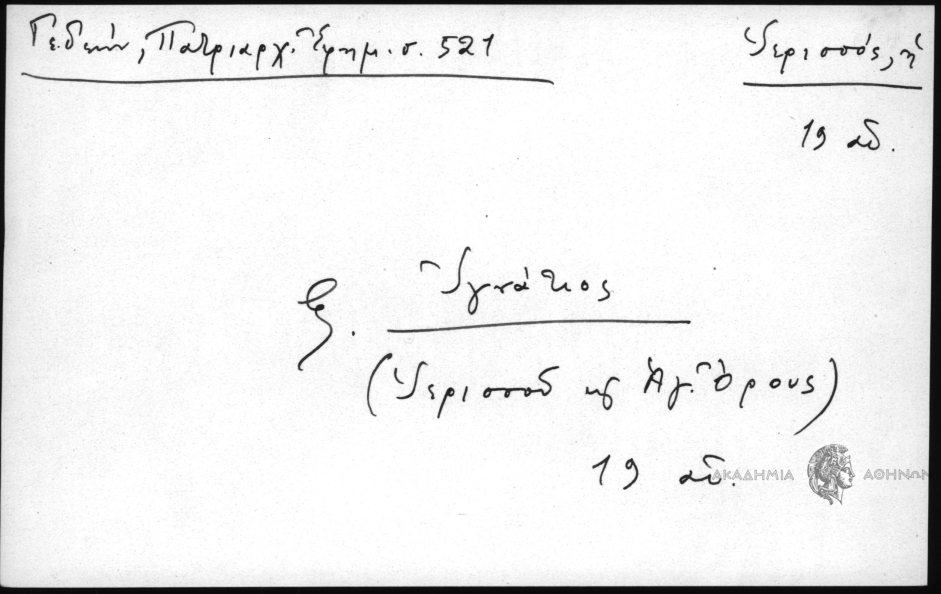 Γεδεών, Πατριαρχ. Ἐφημ. σ. 521
Ἱερισσός, ἡ
19 αἰ.
Ἰγνάτιος
(Ἱερισσοῦ κ Ἁγ. Ὄρους)
19 αἰ.
ΑΚΑΔΗΜΙΑ ΑΘΗΝΩΝ